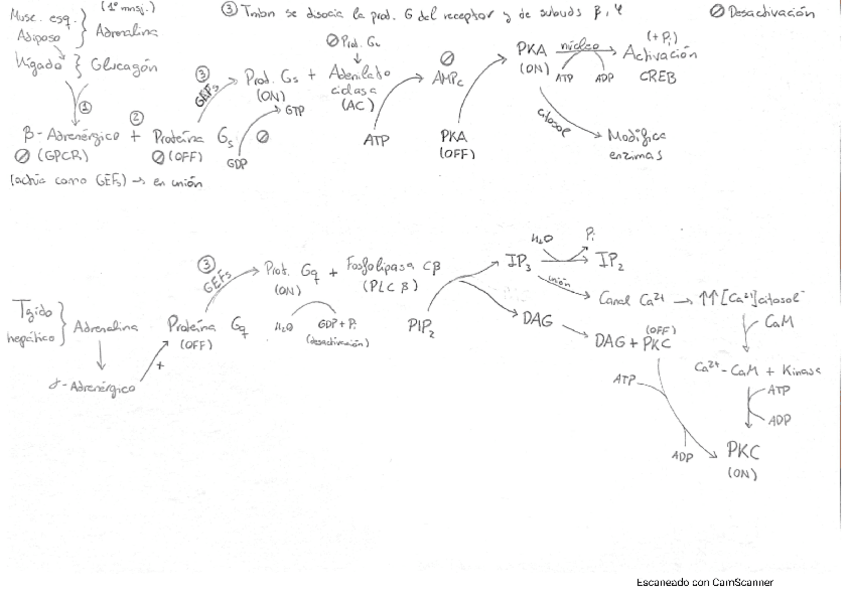 Musc. esq.
Adiposo
(1º mnsj.)
Adrenalina
Hígado
Glucagón
③ Tmbn se disocia la prot. G del receptor y de subuds β, γ
∅ Desactivación
①
β-Adrenérgico + Proteína Gs
∅ (GPCR)
②
∅ (OFF)
(actúa como GEFs) → en unión
③
GEFs
Prot. Gs + Adenilato
(ON)
ciclasa
(AC)
∅ Prot. Gs
GTP
∅
GDP
ATP
∅
AMPc
PKA
(OFF)
PKA
(ON)
núcleo
ATP
ADP
(+Pi)
Activación
CREB
citosol
Modifica
enzimas
Tejido
hepático
Adrenalina
α-Adrenérgico
+
Proteína Gq
(OFF)
③
GEFs
Prot. Gq + Fosfolipasa Cβ
(ON)
(PLC β)
H₂O
GDP + Pi
(desactivación)
PIP₂
IP₃
H₂O
Pi
IP₂
unión
Canal Ca²⁺ → ↑↑ [Ca²⁺] citosol
CaM
DAG
(OFF)
DAG + PKC
Ca²⁺-CaM + Kinasa
ATP
ADP
ATP
ADP
PKC
(ON)
Escaneado con CamScanner